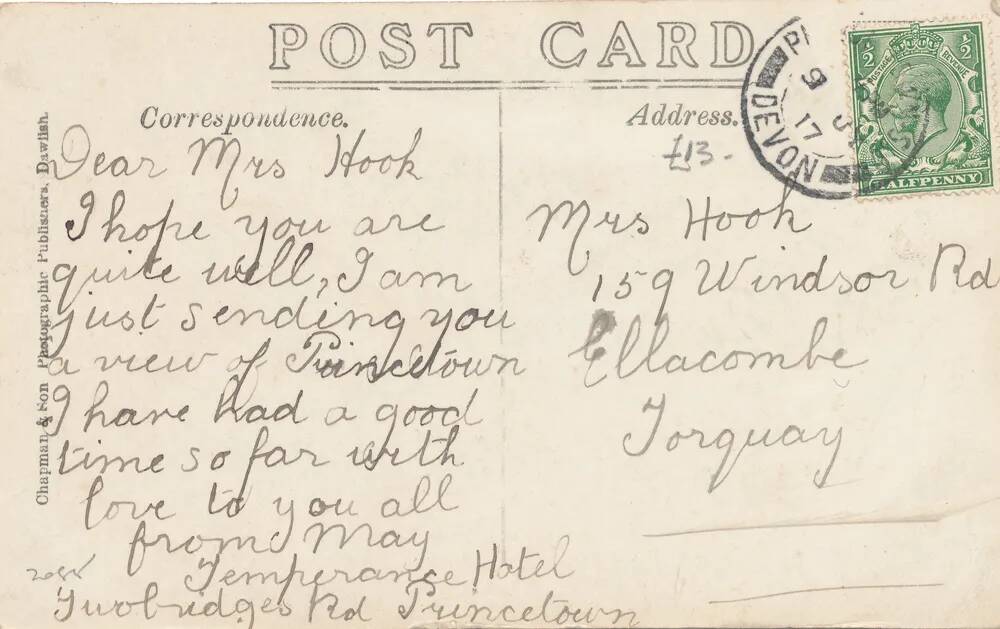 POST CARD
Correspondence.
Dear Mrs Hook
I hope you are
quite well, I am
just sending you
a view of Princetown
I have had a good
time so far with
love to you all
from May
Temperance Hotel
Twobridges Rd Princetown
Address.
£13-
Mrs Hook
159 Windsor Rd
Ellacombe
Torquay
Chapman & Son Photographic Publishers, Dawlish.
DEVON
17
½ ½
POSTAGE REVENUE
HALFPENNY